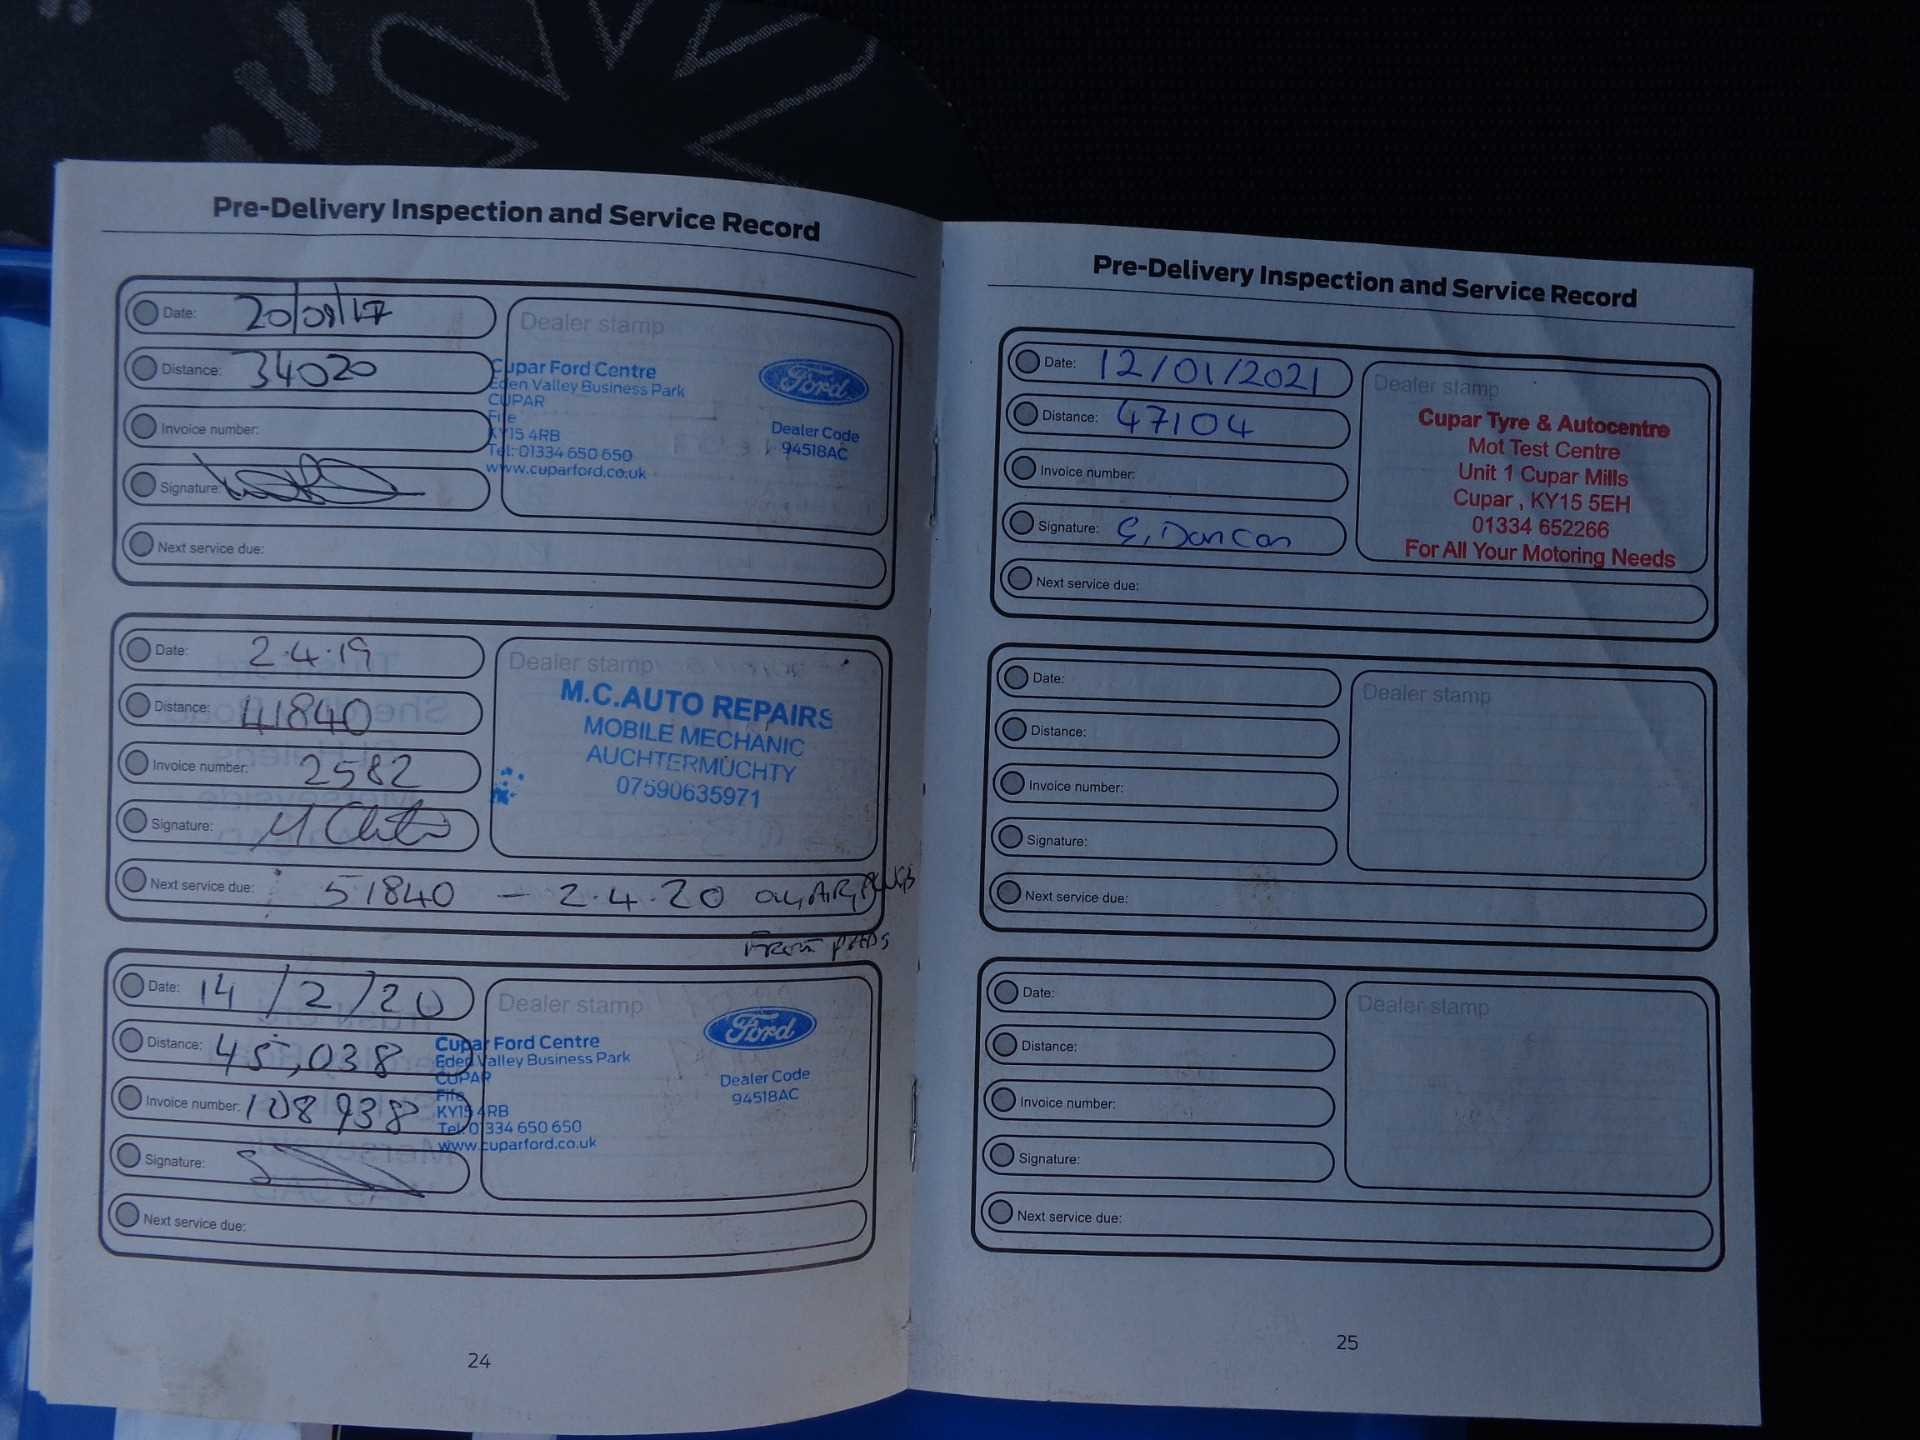 Pre-Delivery Inspection and Service Record
Date: 20/09/17
Distance: 34020
Invoice number:
Signature:
Next service due:
Dealer stamp
Cupar Ford Centre
Eden Valley Business Park
CUPAR
Fife
KY15 4RB
Tel: 01334 650 650
www.cuparford.co.uk
Ford
Dealer Code
94518AC
Date: 2.4.19
Distance: 41840
Invoice number: 2582
Signature:
Next service due: 51840 - 2.4.20
Dealer stamp
M.C.AUTO REPAIRS
MOBILE MECHANIC
AUCHTERMUCHTY
07590635971
Front pads
Date: 14/2/20
Distance: 45,038
Invoice number: 108938
Signature:
Next service due:
Dealer stamp
Cupar Ford Centre
Eden Valley Business Park
CUPAR
Fife
KY15 4RB
Tel: 01334 650 650
www.cuparford.co.uk
Ford
Dealer Code
94518AC
24
Pre-Delivery Inspection and Service Record
Date: 12/01/2021
Distance: 47104
Invoice number:
Signature: G. Duncan
Next service due:
Dealer stamp
Cupar Tyre & Autocentre
Mot Test Centre
Unit 1 Cupar Mills
Cupar , KY15 5EH
01334 652266
For All Your Motoring Needs
Date:
Distance:
Invoice number:
Signature:
Next service due:
Dealer stamp
Date:
Distance:
Invoice number:
Signature:
Next service due:
Dealer stamp
25